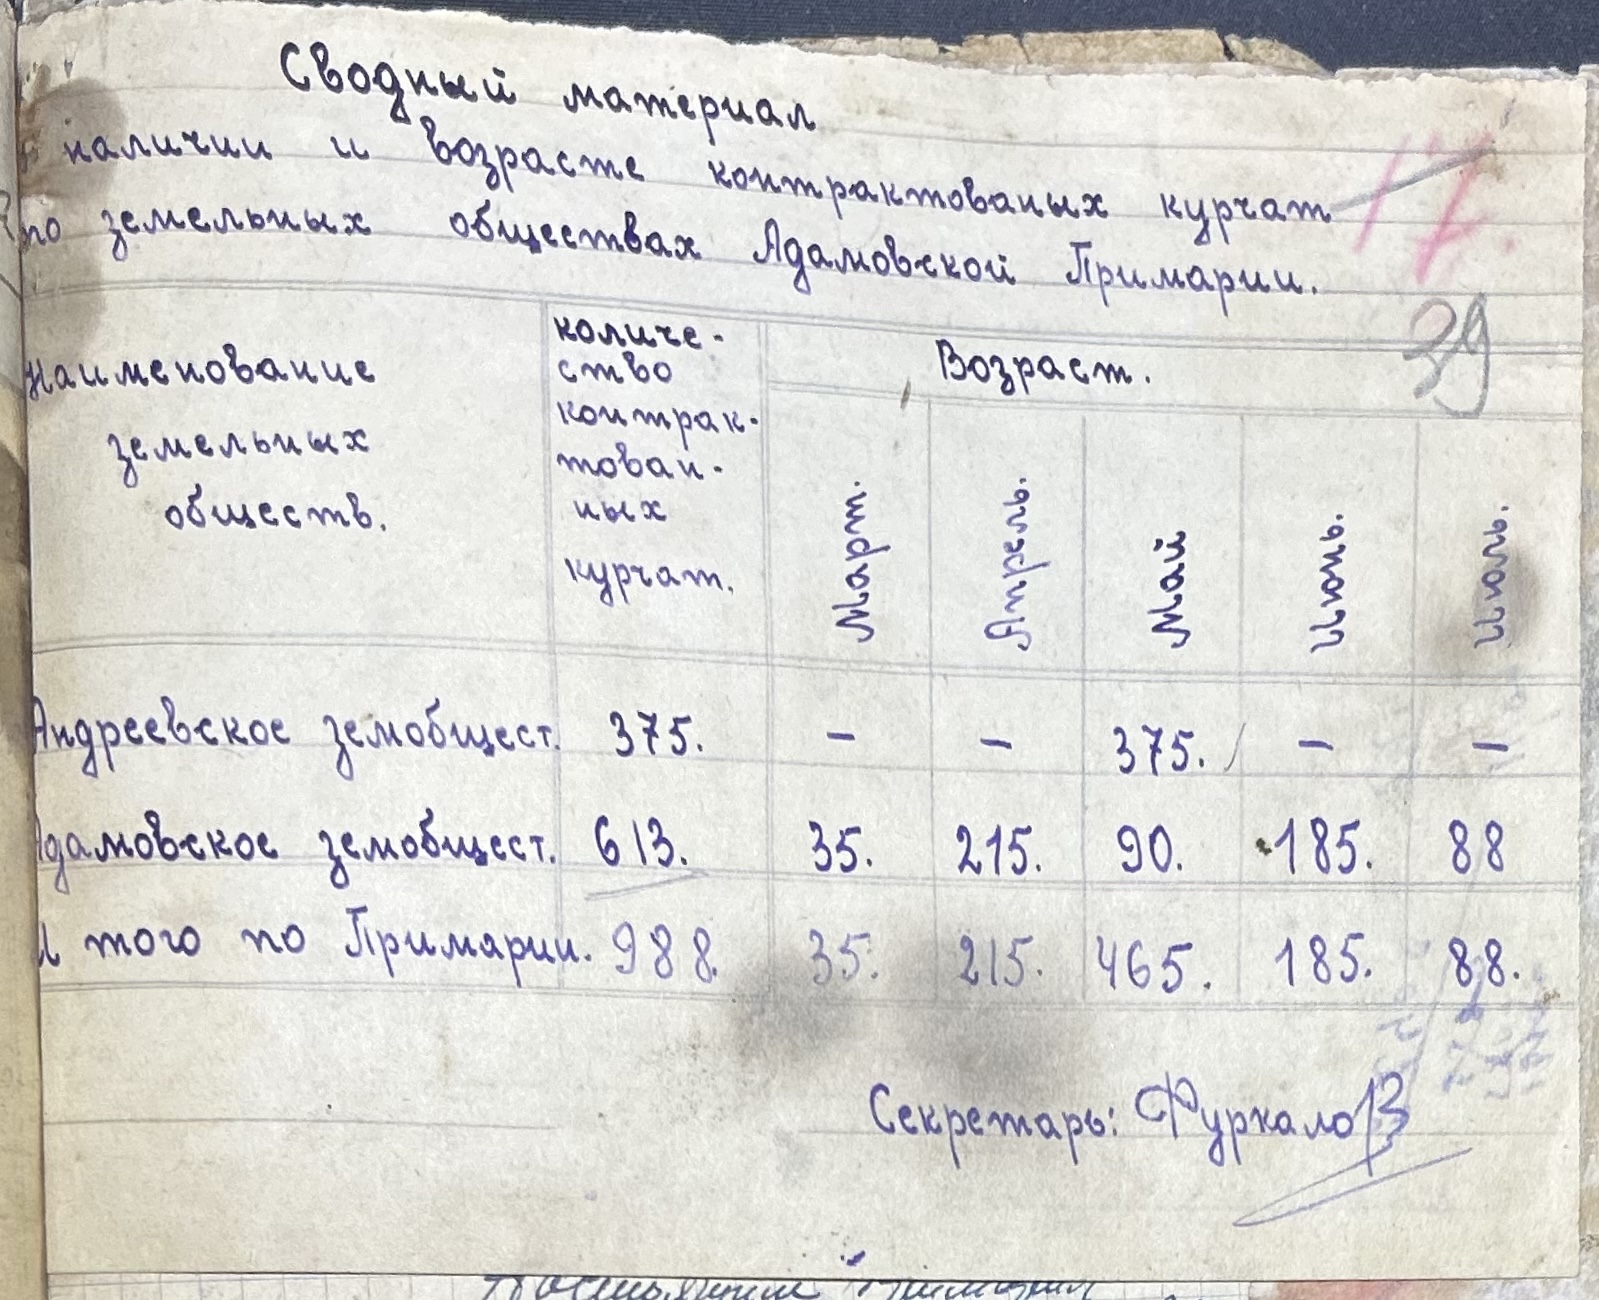 Сводный материал
наличии и возрасте контрактованых курчат
по земельных обществах Адамовской Примарии.
17.
39
Наименование земельных обществ.
количе-
ство
контрак-
тован-
ных
курчат.
Возраст.
Март. Апрель. Май Июнь. Июль.
Андреевское земобщест. 375. – – 375. – –
Адамовское земобщест. 613. 35. 215. 90. 185. 88
И того по Примарии. 988. 35. 215. 465. 185. 88.
Секретарь: Фуркало В